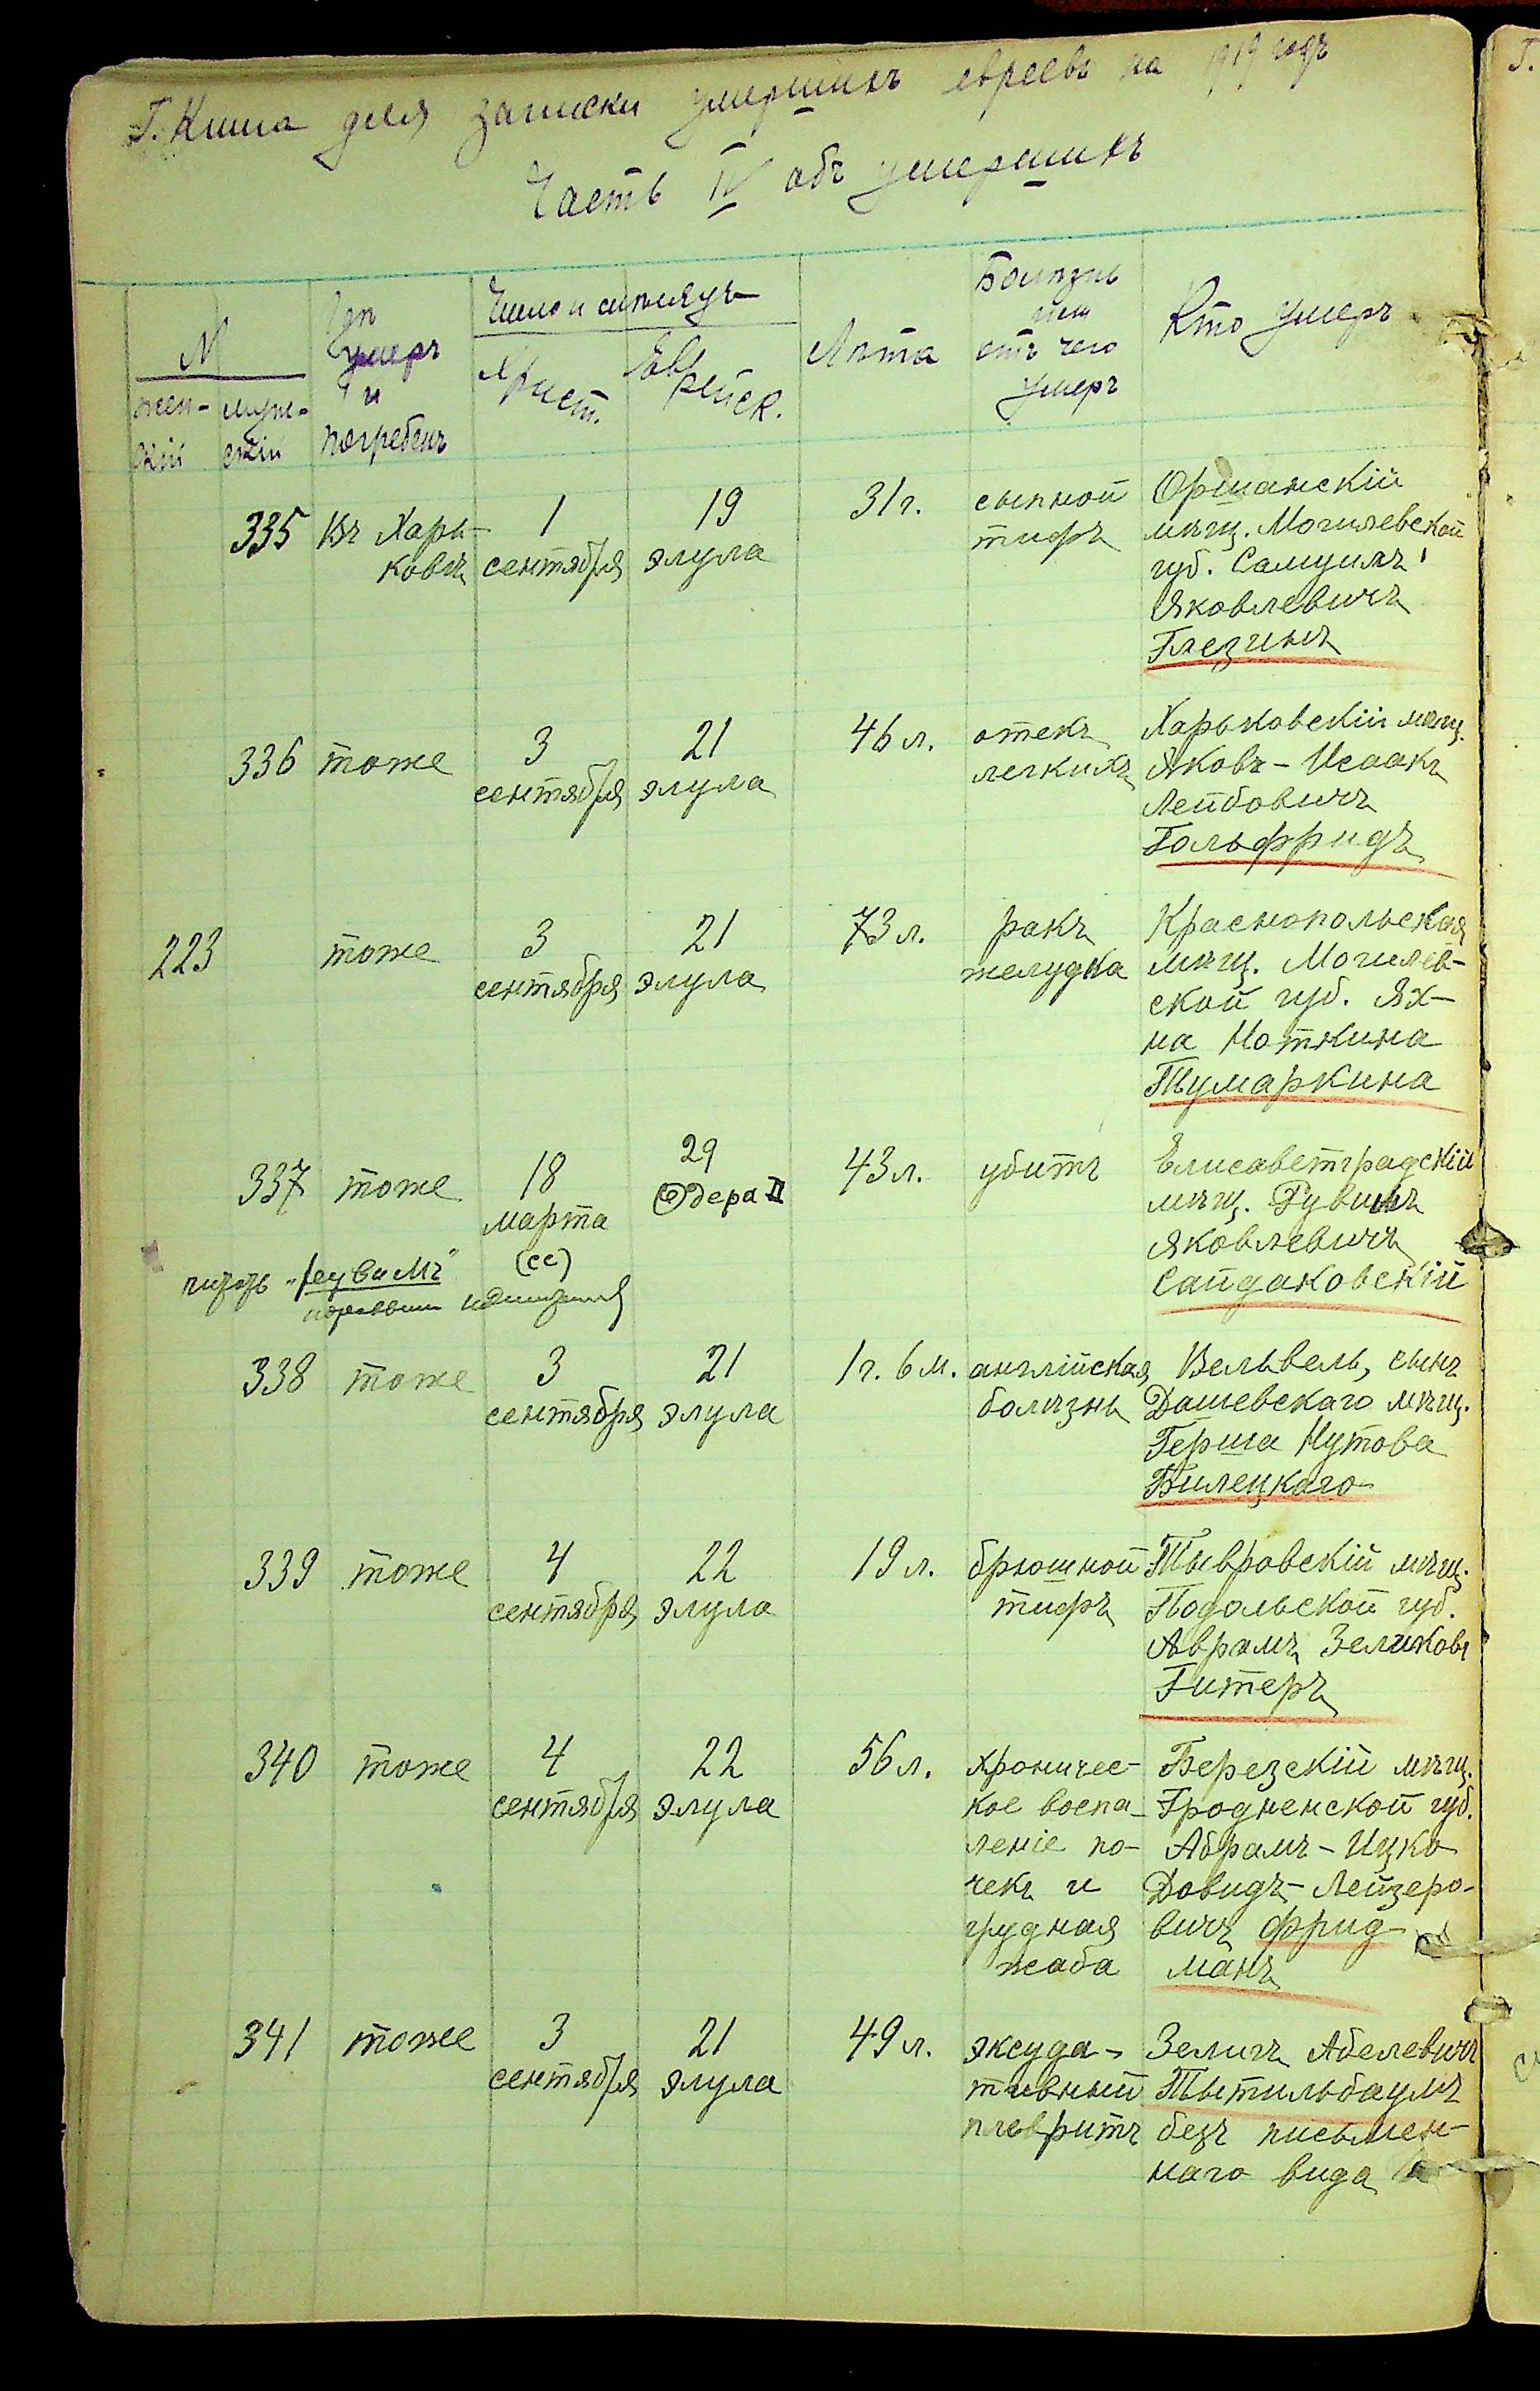 Г. Книга для записки умершихъ евреевъ на 1919 годъ
Часть IV объ умершихъ
N
жен-
скій
муж-
скій
Гдѣ
умеръ
и
погребенъ
Число и мѣсяцъ
Христ.
Еврейск.
Лѣта
Болѣзнь
или
отъ чего
умеръ
Кто умеръ
335 Въ Харь- 1 19 31 г. сыпной Оршанскій
ковѣ сентября элула тифъ мѣщ. Могилевской
губ. Самуилъ
Яковлевичъ
Глезинъ
336 тоже 3 21 46 л. отекъ Харьковскій мѣщ.
сентября элула легкихъ Яковъ-Исаакъ
Лейбовичъ
Гольфридъ
223 тоже 3 21 73 л. ракъ Краснопольская
сентября элула желудка мѣщ. Могилев-
ской губ. Ях-
на Ноткина
Тумаркина
337 тоже 18 29 43 л. убитъ Елисаветградскій
марта Одера II мѣщ. Рувинъ
(сс) Яковлевичъ
Сайдаковскій
"Реувимъ"
338 тоже 3 21 1 г. 6 м. англійская Вельвель, сынъ
сентября элула болѣзнь Дашевскаго мѣщ.
Герша Нутова
Билецкаго
339 тоже 4 22 19 л. брюшной Тывровскій мѣщ.
сентября элула тифъ Подольской губ.
Аврамъ Зеликовъ
Гитеръ
340 тоже 4 22 56 л. хроничес- Березскій мѣщ.
сентября элула кое воспа- Гродненской губ.
леніе по- Абрамъ-Ицко
чекъ и Довидъ-Лейзеро-
грудная вичъ Фрид-
жаба манъ
341 тоже 3 21 49 л. эксуда- Зелигъ Абелевичъ
сентября элула тивный Тытильбаумъ
плевритъ безъ письмен-
наго вида